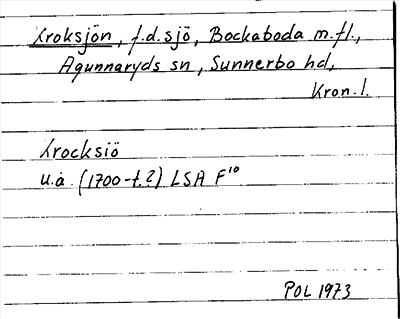 Kroksjön, f.d. sjö, Bockaboda m.fl.,
Agunnaryds sn, Sunnerbo hd,
Kron.l.
Krocksiö
u.å. (1700-t.?) LSA F¹⁰
POL 1973